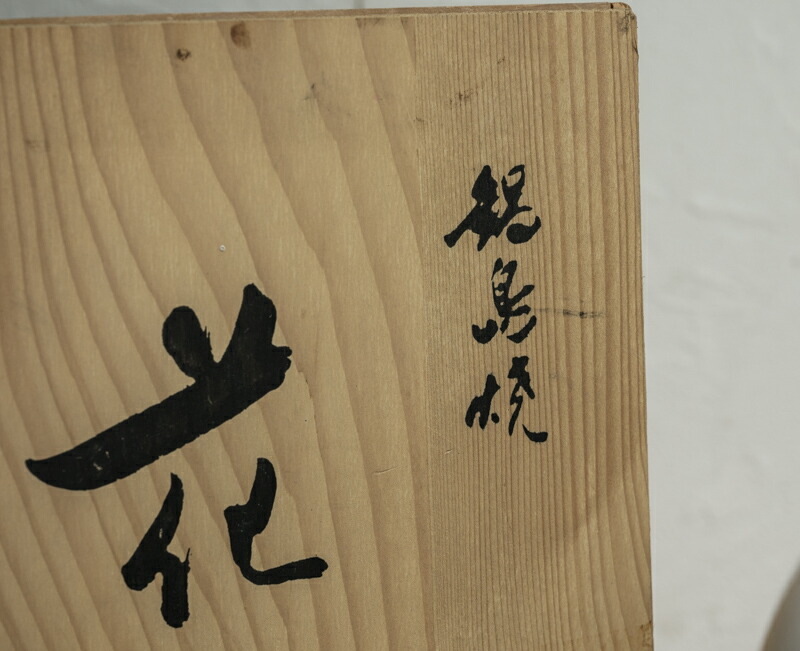 鍋島焼
花